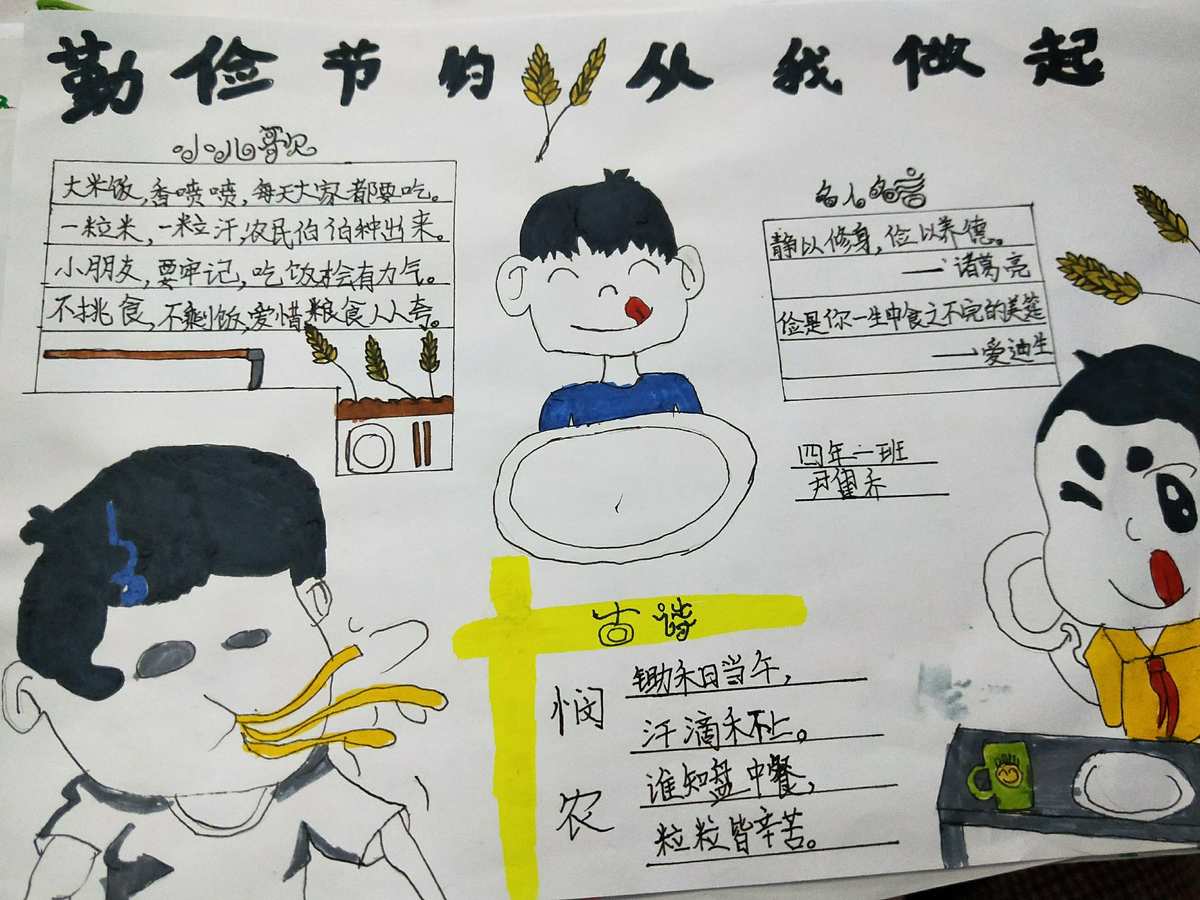 勤俭节约从我做起
小儿歌
大米饭,香喷喷,每天大家都要吃。
一粒米,一粒汗,农民伯伯种出来。
小朋友,要牢记,吃饭才会有力气。
不挑食,不剩饭,爱惜粮食人人夸。
名人名言
静以修身,俭以养德。
——诸葛亮
俭是你一生中食之不完的美筵
——爱迪生
四年一班
古诗
悯农
锄禾日当午,
汗滴禾下土。
谁知盘中餐,
粒粒皆辛苦。